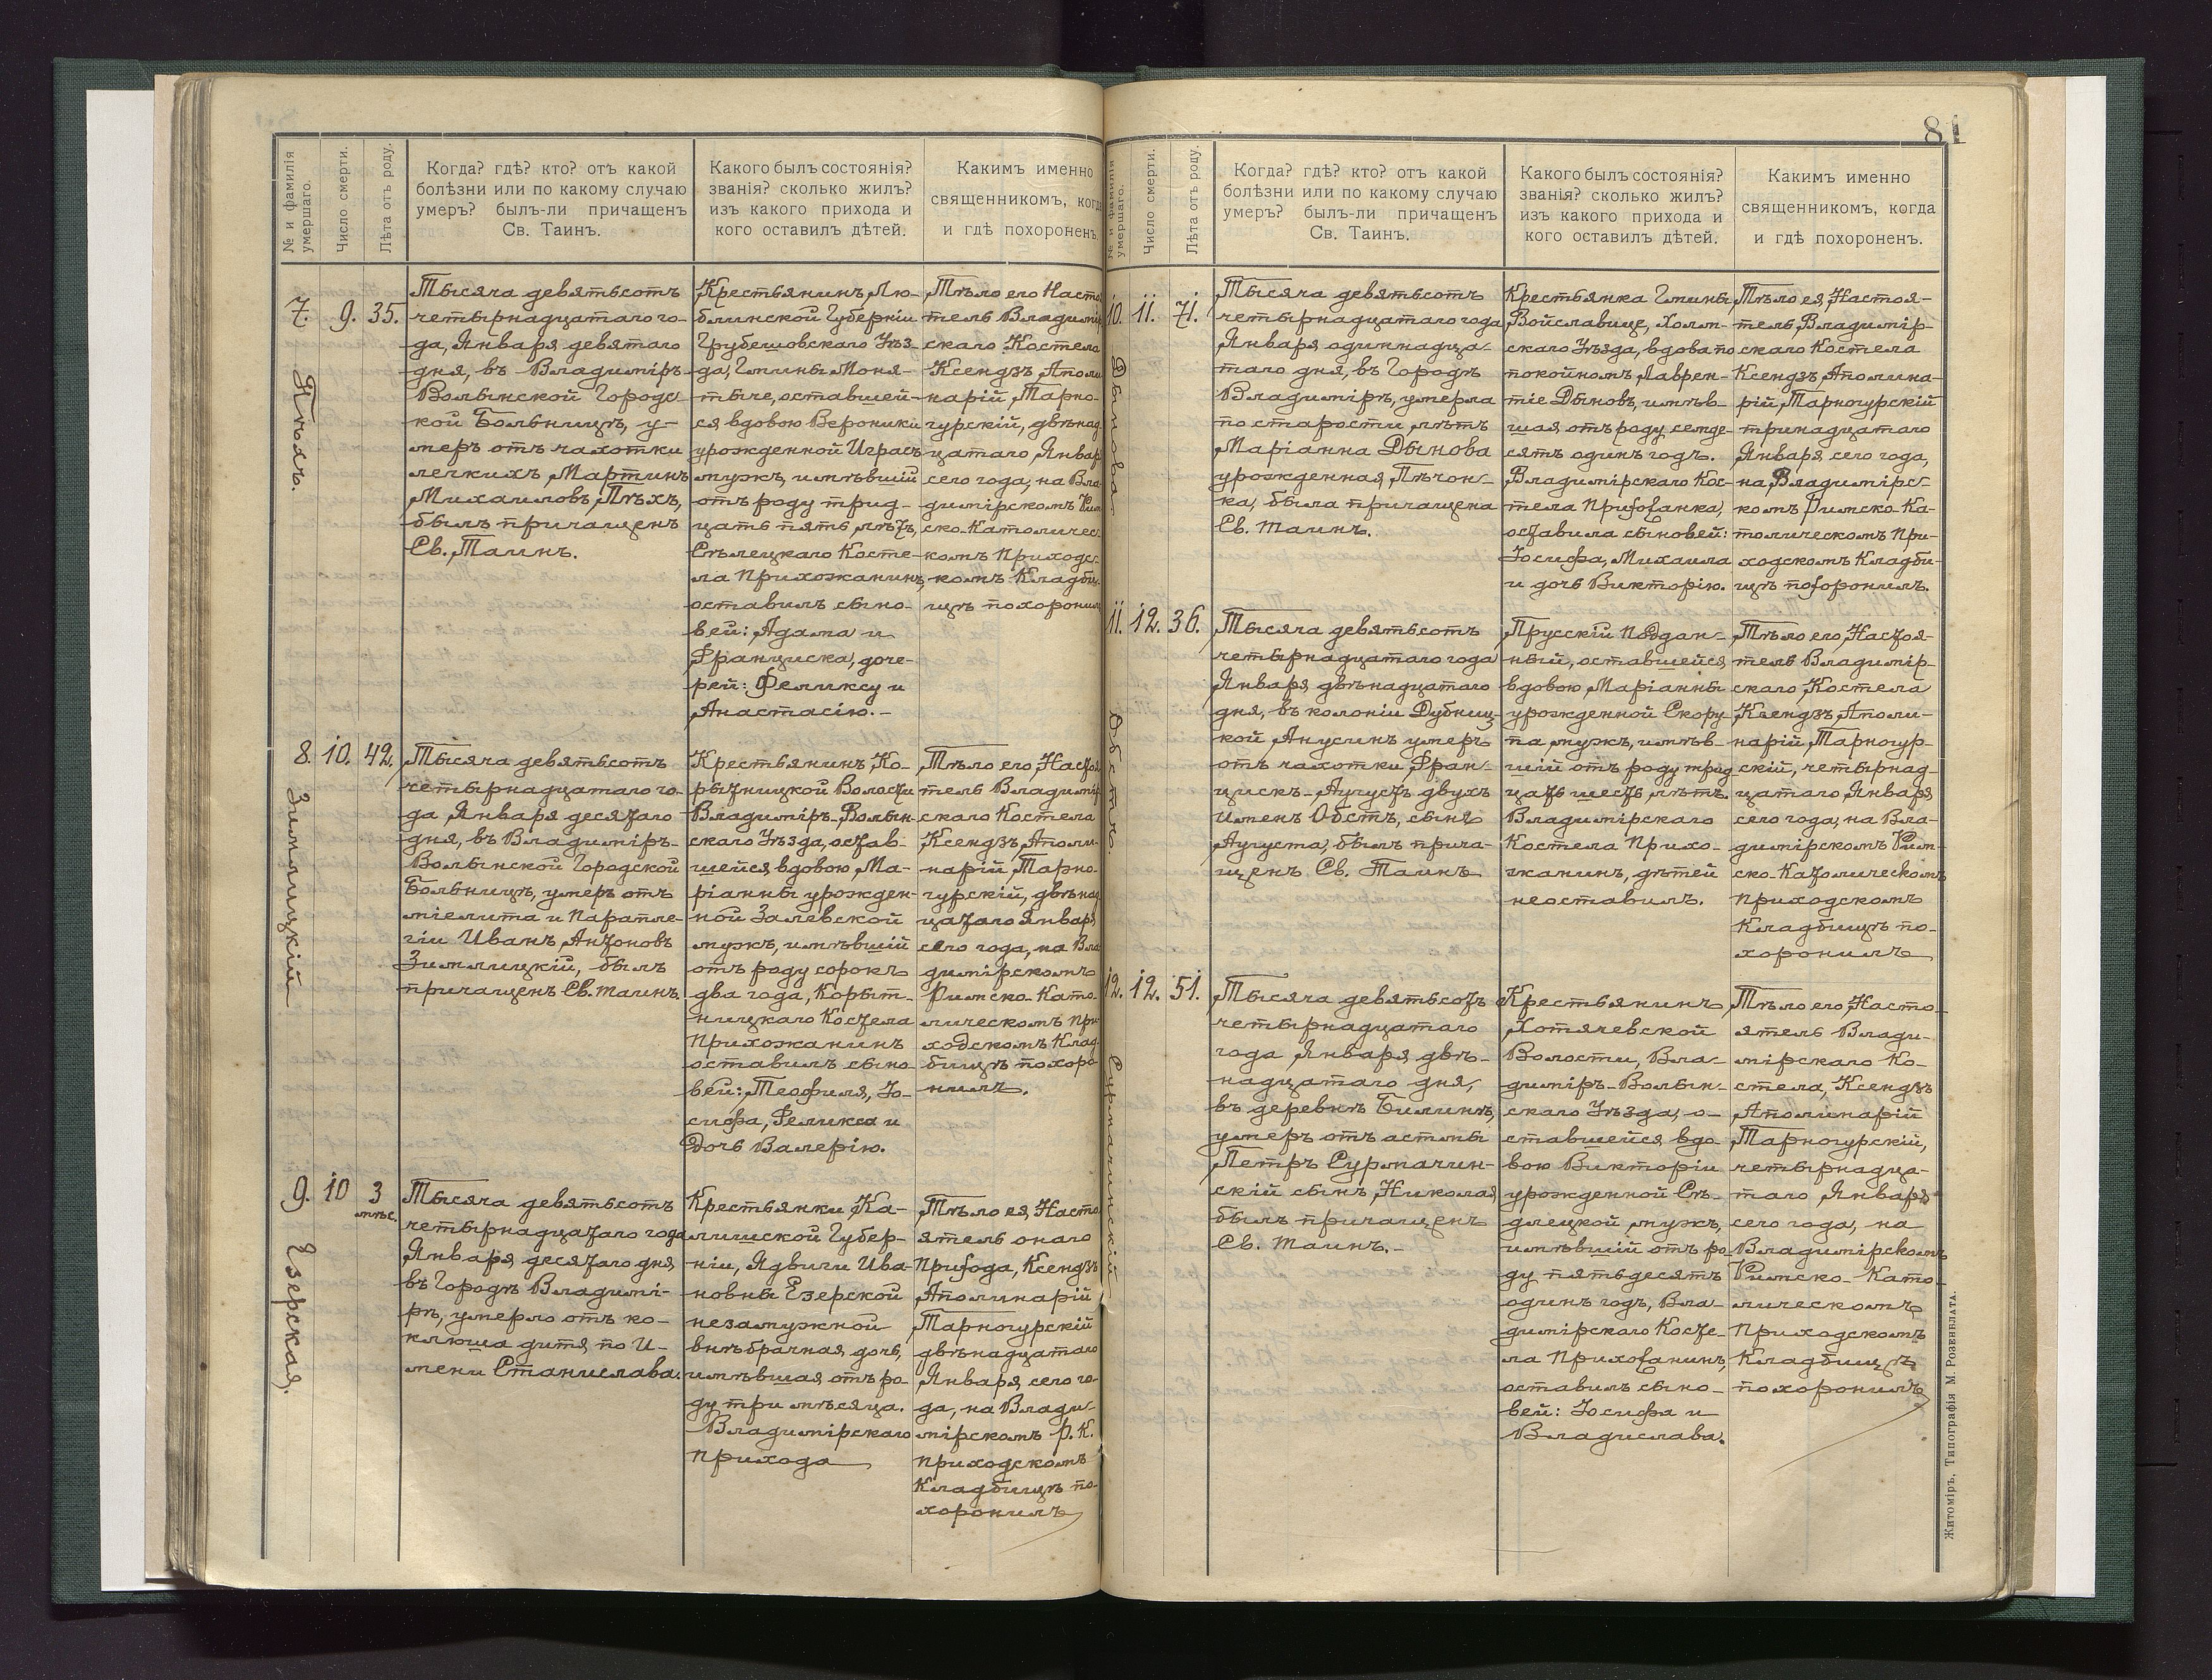 № и фамилія
умершаго.
Число смерти.
Лѣта отъ роду.
Когда? гдѣ? кто? отъ какой
болѣзни или по какому случаю
умеръ? былъ-ли причащенъ
Св. Таинъ.
Какого былъ состоянія?
званія? сколько жилъ?
изъ какого прихода и
кого оставилъ дѣтей.
Каким именно
священникомъ, когда
и гдѣ похороненъ.
7.
Пѣхъ.
9.
35.
Тысяча девятьсотъ
четырнадцатаго го-
да, Января девятаго
дня, въ Владиміръ-
Волынской Городс-
кой Больницѣ, у-
меръ отъ чахотки
легкихъ Мартинъ
Михаиловъ Пѣхъ,
былъ причащенъ
Св. Таинъ.
Крестьянинъ Лю-
блинской Губерніи
Грубешовскаго Уѣз-
да, Гмины Моня-
тыче, оставшей-
ся вдовою Вероники
урожденной Играсъ
мужъ, имѣвшій
отъ роду трид-
цать пять лѣтъ,
Стѣлецкаго Косте-
ла прихожанинъ,
оставилъ сыно-
вей: Адама и
Франциска, доче-
рей: Феликсу и
Анастасію.-
Тѣло его Насто
тель Владимір
скаго Костела
Ксендзъ Аполи
нарій Тарно-
гурскій, двѣнад
цатаго Январ
сего года, на Вла
димірскомъ Рим
ско-Католичес-
комъ Приходс-
комъ Кладби-
щѣ похоронил
8.
Зимлицкій
10.
42.
Тысяча девятьсотъ
четырнадцатаго го-
да Января десятаго
дня, въ Владиміръ-
Волынской Городской
Больницѣ, умеръ отъ
міелита и Парапле-
гіи Иванъ Антоновъ
Зимлицкій, былъ
причащенъ Св. таинъ.
Крестьянинъ, Ко-
рытницкой Волости
Владиміръ-Волын-
скаго Уѣзда, остав-
шейся вдовою Ма-
ріанны урожден-
ной Залевской
мужъ, имѣвшій
отъ роду сорокъ
два года, Корыт-
ницкаго Костела
прихожанинъ
оставилъ сыно-
вей: Теофиля, Іо-
сифа, Феликса и
Дочь Валерію.
Тѣло его, Настоя
тель Владимір
скаго Костела
Ксендзъ Аполи-
нарій Тарно-
гурскій, двѣнад
цатаго Января
сего года, на Вла
димірскомъ
Римско-Като-
лическомъ при-
ходскомъ Клад-
бищѣ похоро
нилъ.
9.
Езерская.
10
3
мѣс.
Тысяча девятьсотъ
четырнадцатаго года
Января десятаго дня
въ Городѣ Владимі-
рѣ, умерло отъ ко-
клюша дитя по и-
мени Станислава.
Крестьянки Ка-
лишской Губер-
ніи, Ядвиги Ива-
новны Езерской
незамужной
внѣбрачная дочь,
имѣвшая отъ ро-
ду три мѣсяца.
Владимірскаго
прихода
Тѣло ея, Насто
ятель онаго
прихода, Ксендзъ
Аполинарій
Тарногурскій
двѣнадцатаго
Января, сего го-
да, на Влади-
мірскомъ Р. К.
приходскомъ
Кладбищѣ по-
хоронилъ
81
№ и фамилія
умершаго.
Число смерти.
Лѣта отъ роду.
Когда? гдѣ? кто? отъ какой
болѣзни или по какому случаю
умеръ? былъ-ли причащенъ
Св. Таинъ.
Какого былъ состоянія?
званія? сколько жилъ?
изъ какого прихода и
кого оставилъ дѣтей.
Каким именно
священникомъ, когда
и гдѣ похороненъ.
10.
Дынова
11.
71.
Тысяча девятьсотъ
четырнадцатаго года,
Января одиннадца-
таго дня, въ Городѣ
Владимірѣ, умерла
по старости лѣтъ
Маріанна Дынова
урожденная Пѣчон-
ка, была причащена
Св. таинъ.
Крестьянка Гмины
Войславице, Холм-
скаго Уѣзда, вдова по
покойномъ Лаврен-
тіе Дыновъ, имѣв-
шая отъ роду семде-
сятъ одинъ годъ.
Владимірскаго Кос-
тела Прихожанка,
оставила сыновей:
Іосифа, Михаила
и дочь Викторію.
Тѣло ея, Настоя-
тель Владимір-
скаго Костела
Ксендзъ Аполина-
рій Тарногурскій
тринадцатаго
Января сего года,
на Владимірс-
комъ Римско-Ка-
толическомъ При-
ходскомъ Кладби-
щѣ похоронилъ.
11.
Обстъ
12.
36.
Тысяча девятьсотъ
четырнадцатаго года
Января двѣнадцатаго
дня, въ колоніи Дубниц-
кой Анусинъ умеръ
отъ чахотки Фран-
цискъ-Аугустъ двухъ
именъ Обстъ, сынъ
Аугуста, былъ прича-
щенъ Св. Таинъ
Прусскій Поддан-
ный, оставшейся
вдовою Маріанны
урожденной Скору-
па мужъ, имѣв-
шій отъ роду трид
цать шесть лѣтъ.
Владимірскаго
Костела Прихо-
жанинъ, дѣтей
неоставилъ.
Тѣло его, Настоя-
тель Владимір-
скаго Костела
Ксендзъ Аполи-
нарій Тарногур-
скій, четырнад-
цатаго Января
сего года, на Вла-
димірскомъ Рим-
ско-Католическомъ
приходскомъ
Кладбищѣ по-
хоронилъ
12.
Сурмачинскій
12.
51.
Тысяча девятьсотъ
четырнадцатаго
года Января двѣ-
надцатаго дня,
въ деревнѣ Билинѣ,
умеръ отъ астмы
Петръ Сурмачин-
скій сынъ Николая,
былъ причащенъ
Св. таинъ.-
Крестьянинъ
Хотячевской
Волости, Вла-
диміръ-Волын-
скаго Уѣзда, о-
ставшейся вдо-
вою Викторіи
урожденной Сѣ-
длецкой мужъ,
имѣвшій отъ ро-
ду пятьдесятъ
одинъ годъ, Вла-
димірскаго Косте-
ла Прихожанинъ,
оставилъ сыно-
вей: Іосифа и
Владислава.
Тѣло его, Насто-
ятель Влади-
мірскаго Ко-
стела, Ксендзъ
Аполинарій
Тарногурскій,
четырнадца-
таго Января
сего года, на
Владимірскомъ
Римско-Като-
лическомъ
приходскомъ
Кладбищѣ
похоронилъ
Житоміръ, Типографія М. Розенблата.